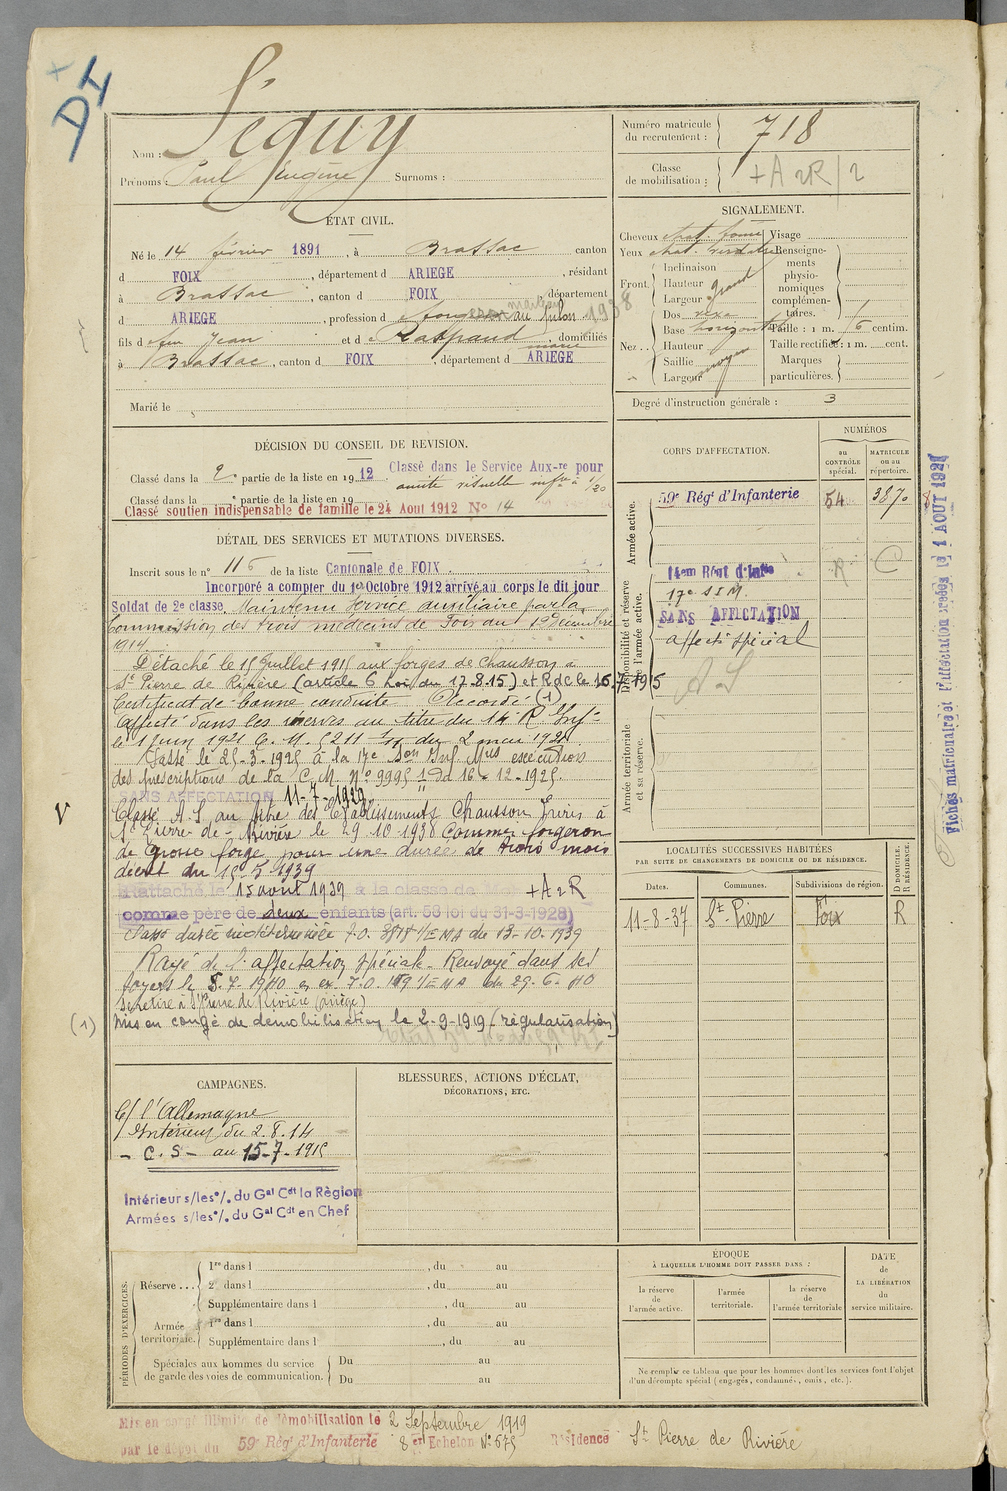 DI
Nom : Séguy
Prénoms : Paul Eugène Surnoms :
Numéro matricule du recrutement : 718
Classe de mobilisation : + A 2R/2
ÉTAT CIVIL.
Né le 14 février 1891, à Brassac canton
d FOIX, département d ARIEGE, résidant
à Brassac, canton d FOIX, département
d ARIEGE, profession d au pilon 1938
fils de feu Jean et de Raspaud, domiciliés
à Brassac, canton d FOIX, département d ARIEGE
Marié le
SIGNALEMENT.
Cheveux chat. foncé
Yeux chat. verdatre
Front. Inclinaison
Hauteur grand
Largeur
Nez... Dos vexe
Base horizontale
Hauteur moyen
Saillie
Largeur
Visage
Renseignements physionomiques complémentaires.
Taille : 1 m. 61 centim.
Taille rectifiée : 1 m. cent.
Marques particulières.
Degré d'instruction générale : 3
DÉCISION DU CONSEIL DE REVISION.
Classé dans la 2e partie de la liste en 1912. Classé dans le Service Aux-re pour
acuité visuelle infre à 1/20
Classé dans la partie de la liste en 19
Classé soutien indispensable de famille le 24 Aout 1912 No 14
DÉTAIL DES SERVICES ET MUTATIONS DIVERSES.
Inscrit sous le n° 116 de la liste Cantonale de FOIX.
Incorporé a compter du 1er Octobre 1912 arrivé au corps le dit jour
Soldat de 2e classe. Maintenu service auxiliaire par la
Commission des trois médecins de Foix du 19 Décembre
1914.
Détaché le 15 Juillet 1915 aux forges de Chausson à
St Pierre de Rivière (article 6 Loi du 17.8.15) et R.d.c le 16.7.1915
Certificat de bonne conduite Accordé (1)
Affecté dans les réserves au titre du 14 R. Inf.
le 1 Juin 1921 C.M. 5211 du 2 mai 1921
Passé le 25-3-1925 à la 17e Son Inf. Mres exécution
des prescriptions de la C.M. no 9995 1/d 16-12-1925.
SANS AFFECTATION 11-7-1929
Classé A.S au titre des Etablissements Chausson Frères à
St Pierre-de-Rivière le 29 10 1938 comme forgeron
de grosse forge pour une durée de trois mois
décret du 15-5-1939
Rattaché le 15 avril 1939 à la classe de Mob + A 2R
comme père de deux enfants (art. 58 loi du 31-3-1928)
Classé durée indéterminée T.O. 3818 1/EMA du 13-10-1939
Rayé de l'affectation spéciale. Renvoyé dans ses
foyers le 5.7-1940 en ex. T.O. 1/EMA du 29.6-40
Se retire à St Pierre de Rivière (Ariège)
(1) Mis en congé de démobilisation le 2-9-1919 (régularisation)
CORPS D'AFFECTATION.
NUMÉROS
au CONTRÔLE spécial.
MATRICULE ou au répertoire.
Armée active.
59e Régt d'Infanterie 54 3870
Disponibilité et réserve de l'armée active.
14em Régt d'Infie R C
17e S I M.
SANS AFFECTATION
affecté spécial
A S
Armée territoriale et sa réserve.
LOCALITÉS SUCCESSIVES HABITÉES
PAR SUITE DE CHANGEMENTS DE DOMICILE OU DE RÉSIDENCE.
Dates. Communes. Subdivisions de région. D DOMICILE. R RÉSIDENCE.
11-8-37 St-Pierre Foix R
Fiches matriculaire et d'affectation créées le 1 AOUT 1927
CAMPAGNES.
C/ l'Allemagne
Intérieur du 2.8.14
- C.S - au 15-7-1915
Intérieur s/les o/. du Gal Cdt la Région
Armées s/les o/. du Gal Cdt en Chef
BLESSURES, ACTIONS D'ÉCLAT,
DÉCORATIONS, ETC.
PÉRIODES D'EXERCICES.
Réserve... 1re dans l , du au
2e dans l , du au
Supplémentaire dans l , du au
Armée territoriale. 1re dans l , du au
Supplémentaire dans l , du au
Spéciales aux hommes du service de garde des voies de communication. Du au
Du au
ÉPOQUE
À LAQUELLE L'HOMME DOIT PASSER DANS :
la réserve de l'armée active.
l'armée territoriale.
la réserve de l'armée territoriale
DATE de LA LIBÉRATION du service militaire.
Ne remplir ce tableau que pour les hommes dont les services font l'objet
d'un décompte spécial (engagés, condamnés, omis, etc.).
Mis en congé illimité de démobilisation le 2 Septembre 1919
par le dépôt du 59e Régt d'Infanterie 8e Echelon No 575 Résidence St Pierre de Rivière